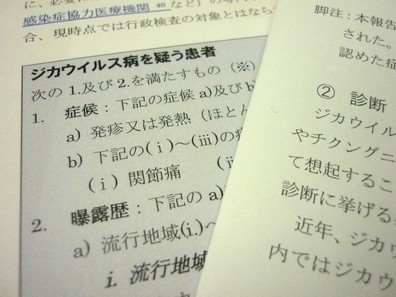 に、必要に
感染症協力医療機関 49 など）の
合、現時点では行政検査の対象とはなら
ジカウイルス病を疑う患者
次の 1.及び 2.を満たすもの（※）
1. 症候：下記の症候 a)及び b
a) 発疹又は発熱（ほとん
b) 下記の(ⅰ)～(ⅲ)の
(ⅰ) 関節痛 (
2. 曝露歴：下記の a)
a) 流行地域(i.)～
i. 流行地域
流行地
脚注：本報告
された。
認めた症
② 診断
ジカウイル
やチクングニ
て想起するこ
診断に挙げる
近年、ジカウ
内ではジカウ